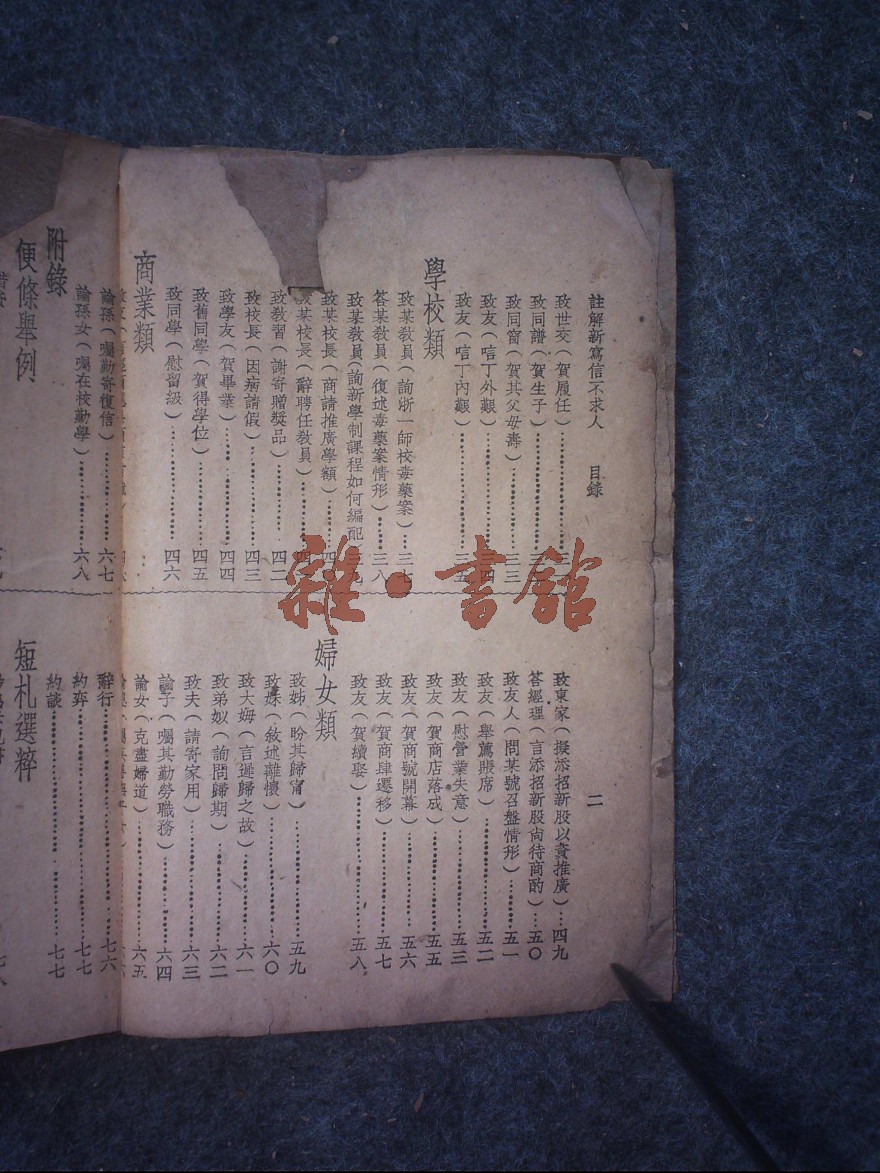 註解新寫信不求人　目錄　二
致世交（賀履任）
致同譜（賀生子）
致同窗（賀其父母壽）…三三
致友（唁丁外艱）
致友（唁丁內艱）
學校類
致某教員（詢浙一師校毒藥案）…三七
答某教員（復述毒藥案情形）…三八
致某教員（詢新學制課程如何編配
致某校長（商請推廣學額）
某校長（辭聘任教員）
致教習（謝寄贈獎品）…四二
致校長（因病請假）…四三
致學友（賀畢業）…四四
致舊同學（賀得學位）…四五
致同學（慰留級）…四六
商業類
致東家（擬添招新股以資推廣）…四九
答經理（言添招新股尙待商酌）…五〇
致友人（問某號召盤情形）…五一
致友（舉薦賬席）…五二
致友（慰營業失意）…五三
致友（賀商店落成）…五五
致友（賀商號開幕）…五六
致友（賀商肆遷移）…五七
致友（賀續娶）…五八
婦女類
致姊（盼其歸甯）…五九
致妹（敘述離懷）…六〇
致大姆（言遲歸之故）…六一
致弟姒（詢問歸期）…六二
致夫（請寄家用）…六三
諭子（囑其勤勞職務）…六四
諭女（克盡婦道）…六五
諭孫（囑勤寄復信）…六七
諭孫女（囑在校勤學）…六八
附錄
便條舉例
辭行…七六
約弈…七七
約談…七七
短札選粹
雜·書館